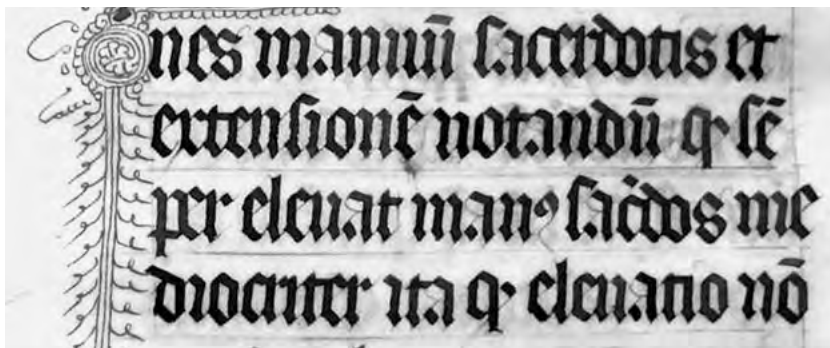 nes manuū sacerdotis et
extensionē notandū qꝫ sē
per eleuat manꝰ sac̄dos me
diocriter ita qꝫ eleuatio nō